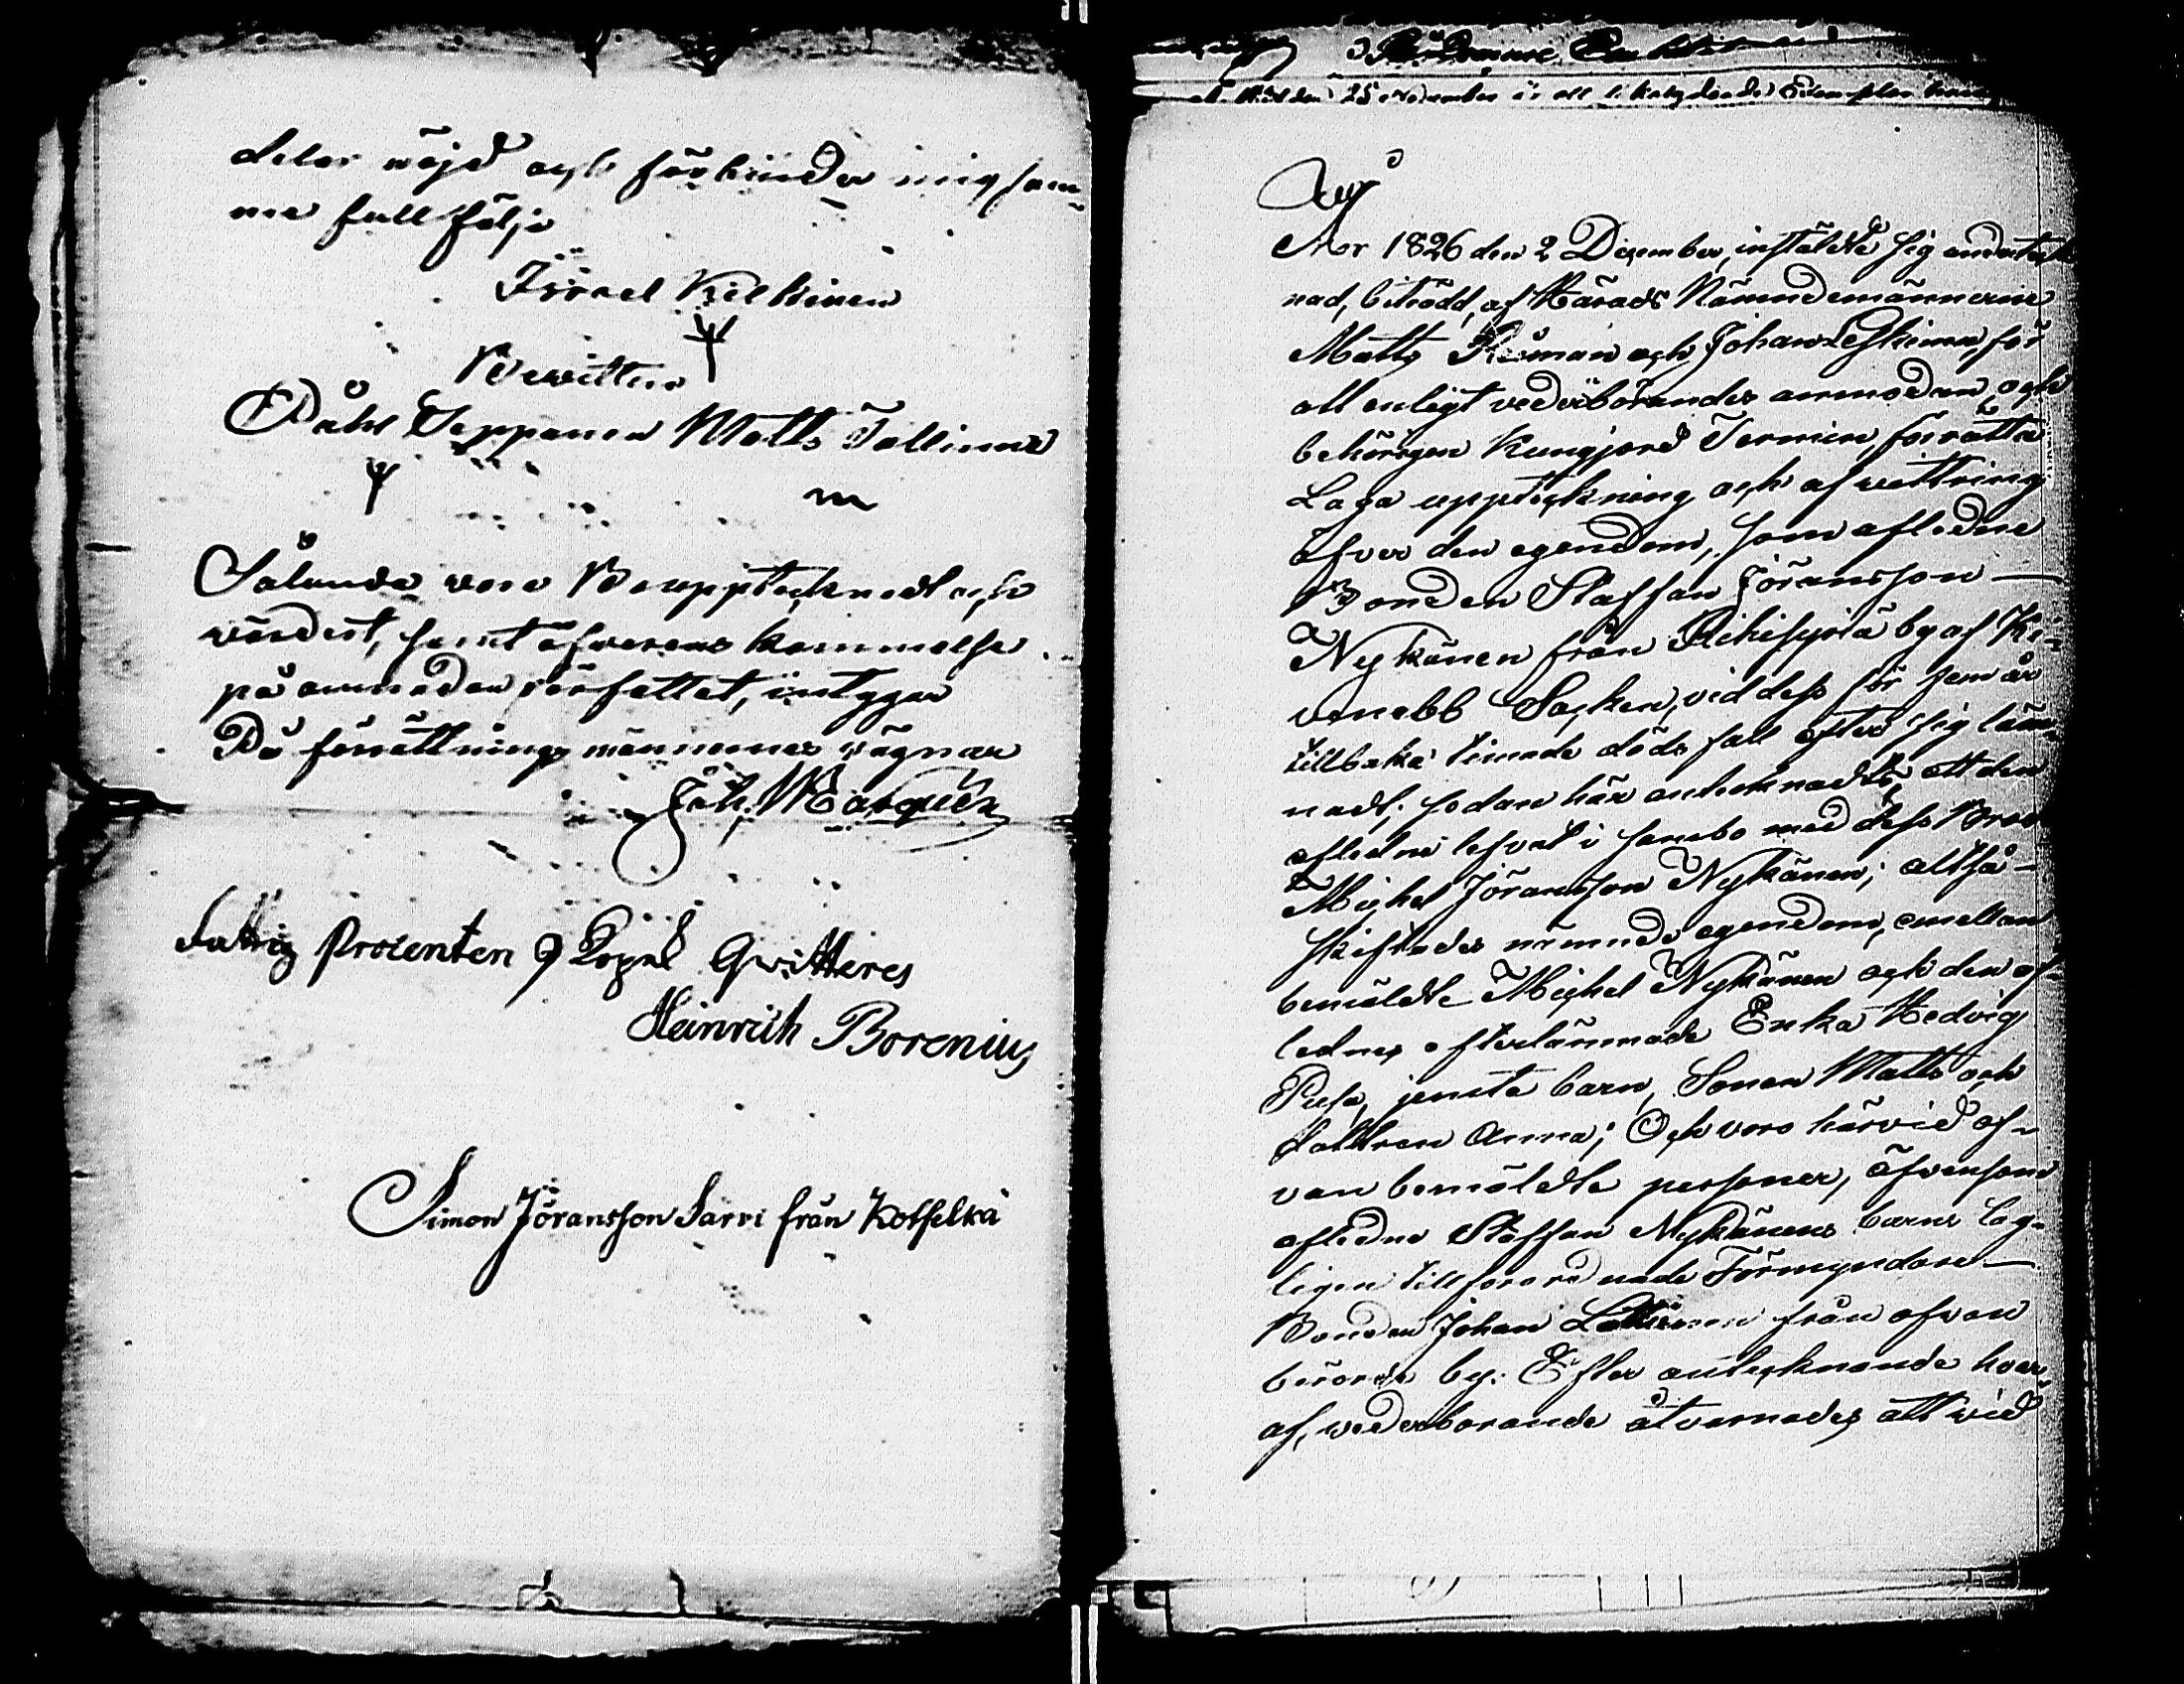 delar nöjd och förbinder mig sam-
me full följa
Israel Kilkinen
Bewittna
Påhl Seppänen Matts Tallinen
Sålunda vara Beupptecknadt och
värdert, samt öfverens kommelse
på anmodan författet, intygar
På förrättnings männernes vägnar
Joh. Marquén
Fattig Procenten 9 Kopek Qvitteres
Heinrich Borenius
Simon Jöransson Sarvi från Kotselkä
År 1826 den 2 December, instälde sig undertek-
nad, biträdd af Härads Nämndemännerne
Matts Råman och Johan Leskinen, för
att enligt vederbörandes anmodan och
behörigen Kungjord Termin, förrätta
Laga uppteckning och afvittring
öfver den egendom, som aflidne
Bonden Staffan Jöransson
Nykänen från Rihisyrjä by af Ki-
venebb Socken, vid dess för fem år
tillbaka timade döds fall efter sig läm-
nadt; sedan här antecknades, att den
aflidne lefvat i sambo med dess Bror
Michel Jöransson Nykänen; altså
skiftades nämnde egendom, emellan
bemälde Michel Nykänen och den af-
lednes efterlämnade Enka Hedvig
Pusa, jemte barn, Sonen Matts och
dottren Anna; Och voro härvid of-
van bemälde personer, äfvensom
afledne Staffan Nykänens barns lag-
ligen till förordnade Förmyndare
Bonden Johan från ofvan
berörde by. Efter antecknande hvar-
af, vederbörande åtvarnades att vid